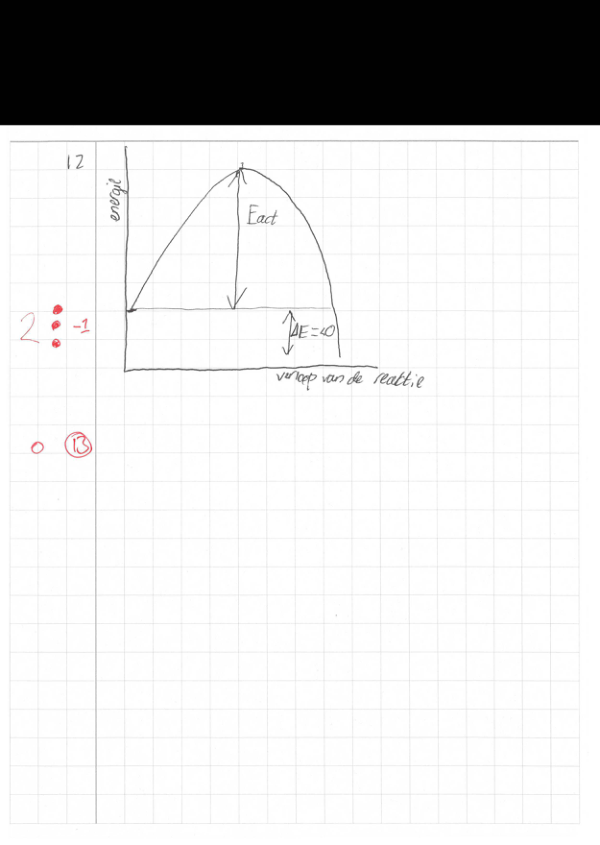 12
energie
Eact
2 -1
ΔE=<0
verloop van de reaktie
0 13